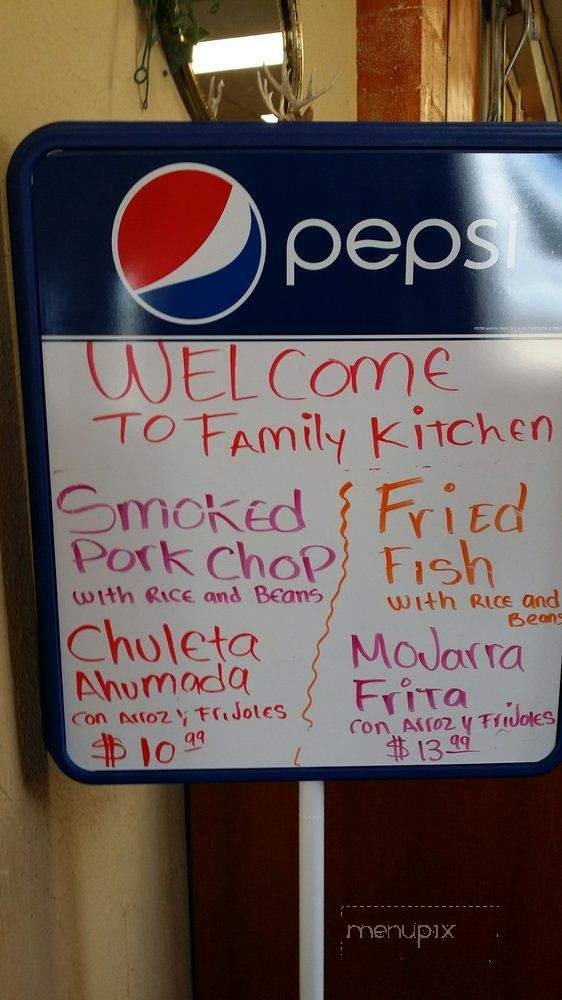 pepsi
WELCOME
TO FAmily KitchEn
SmoKEd
Pork Chop
with RICE and BEans
ChulEta
Ahumada
con Arroz y FriJoles
$ 10 99
FriEd
Fish
with RICE and
Beans
MoJarra
FriTa
con Arroz y FriJoles
$ 13 99
menupix